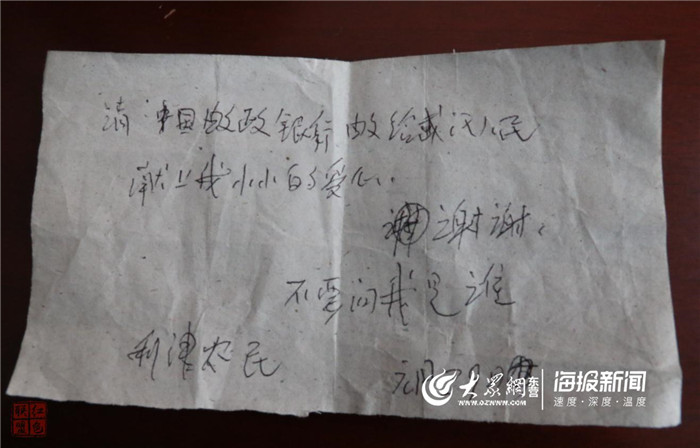 请中国邮政银行邮给武汉人民
献上我小小的爱心.
谢谢.
不要问我是谁
利津农民
元月28日
大众网
东营
www.dzwww.com
海报新闻
速度·深度·温度